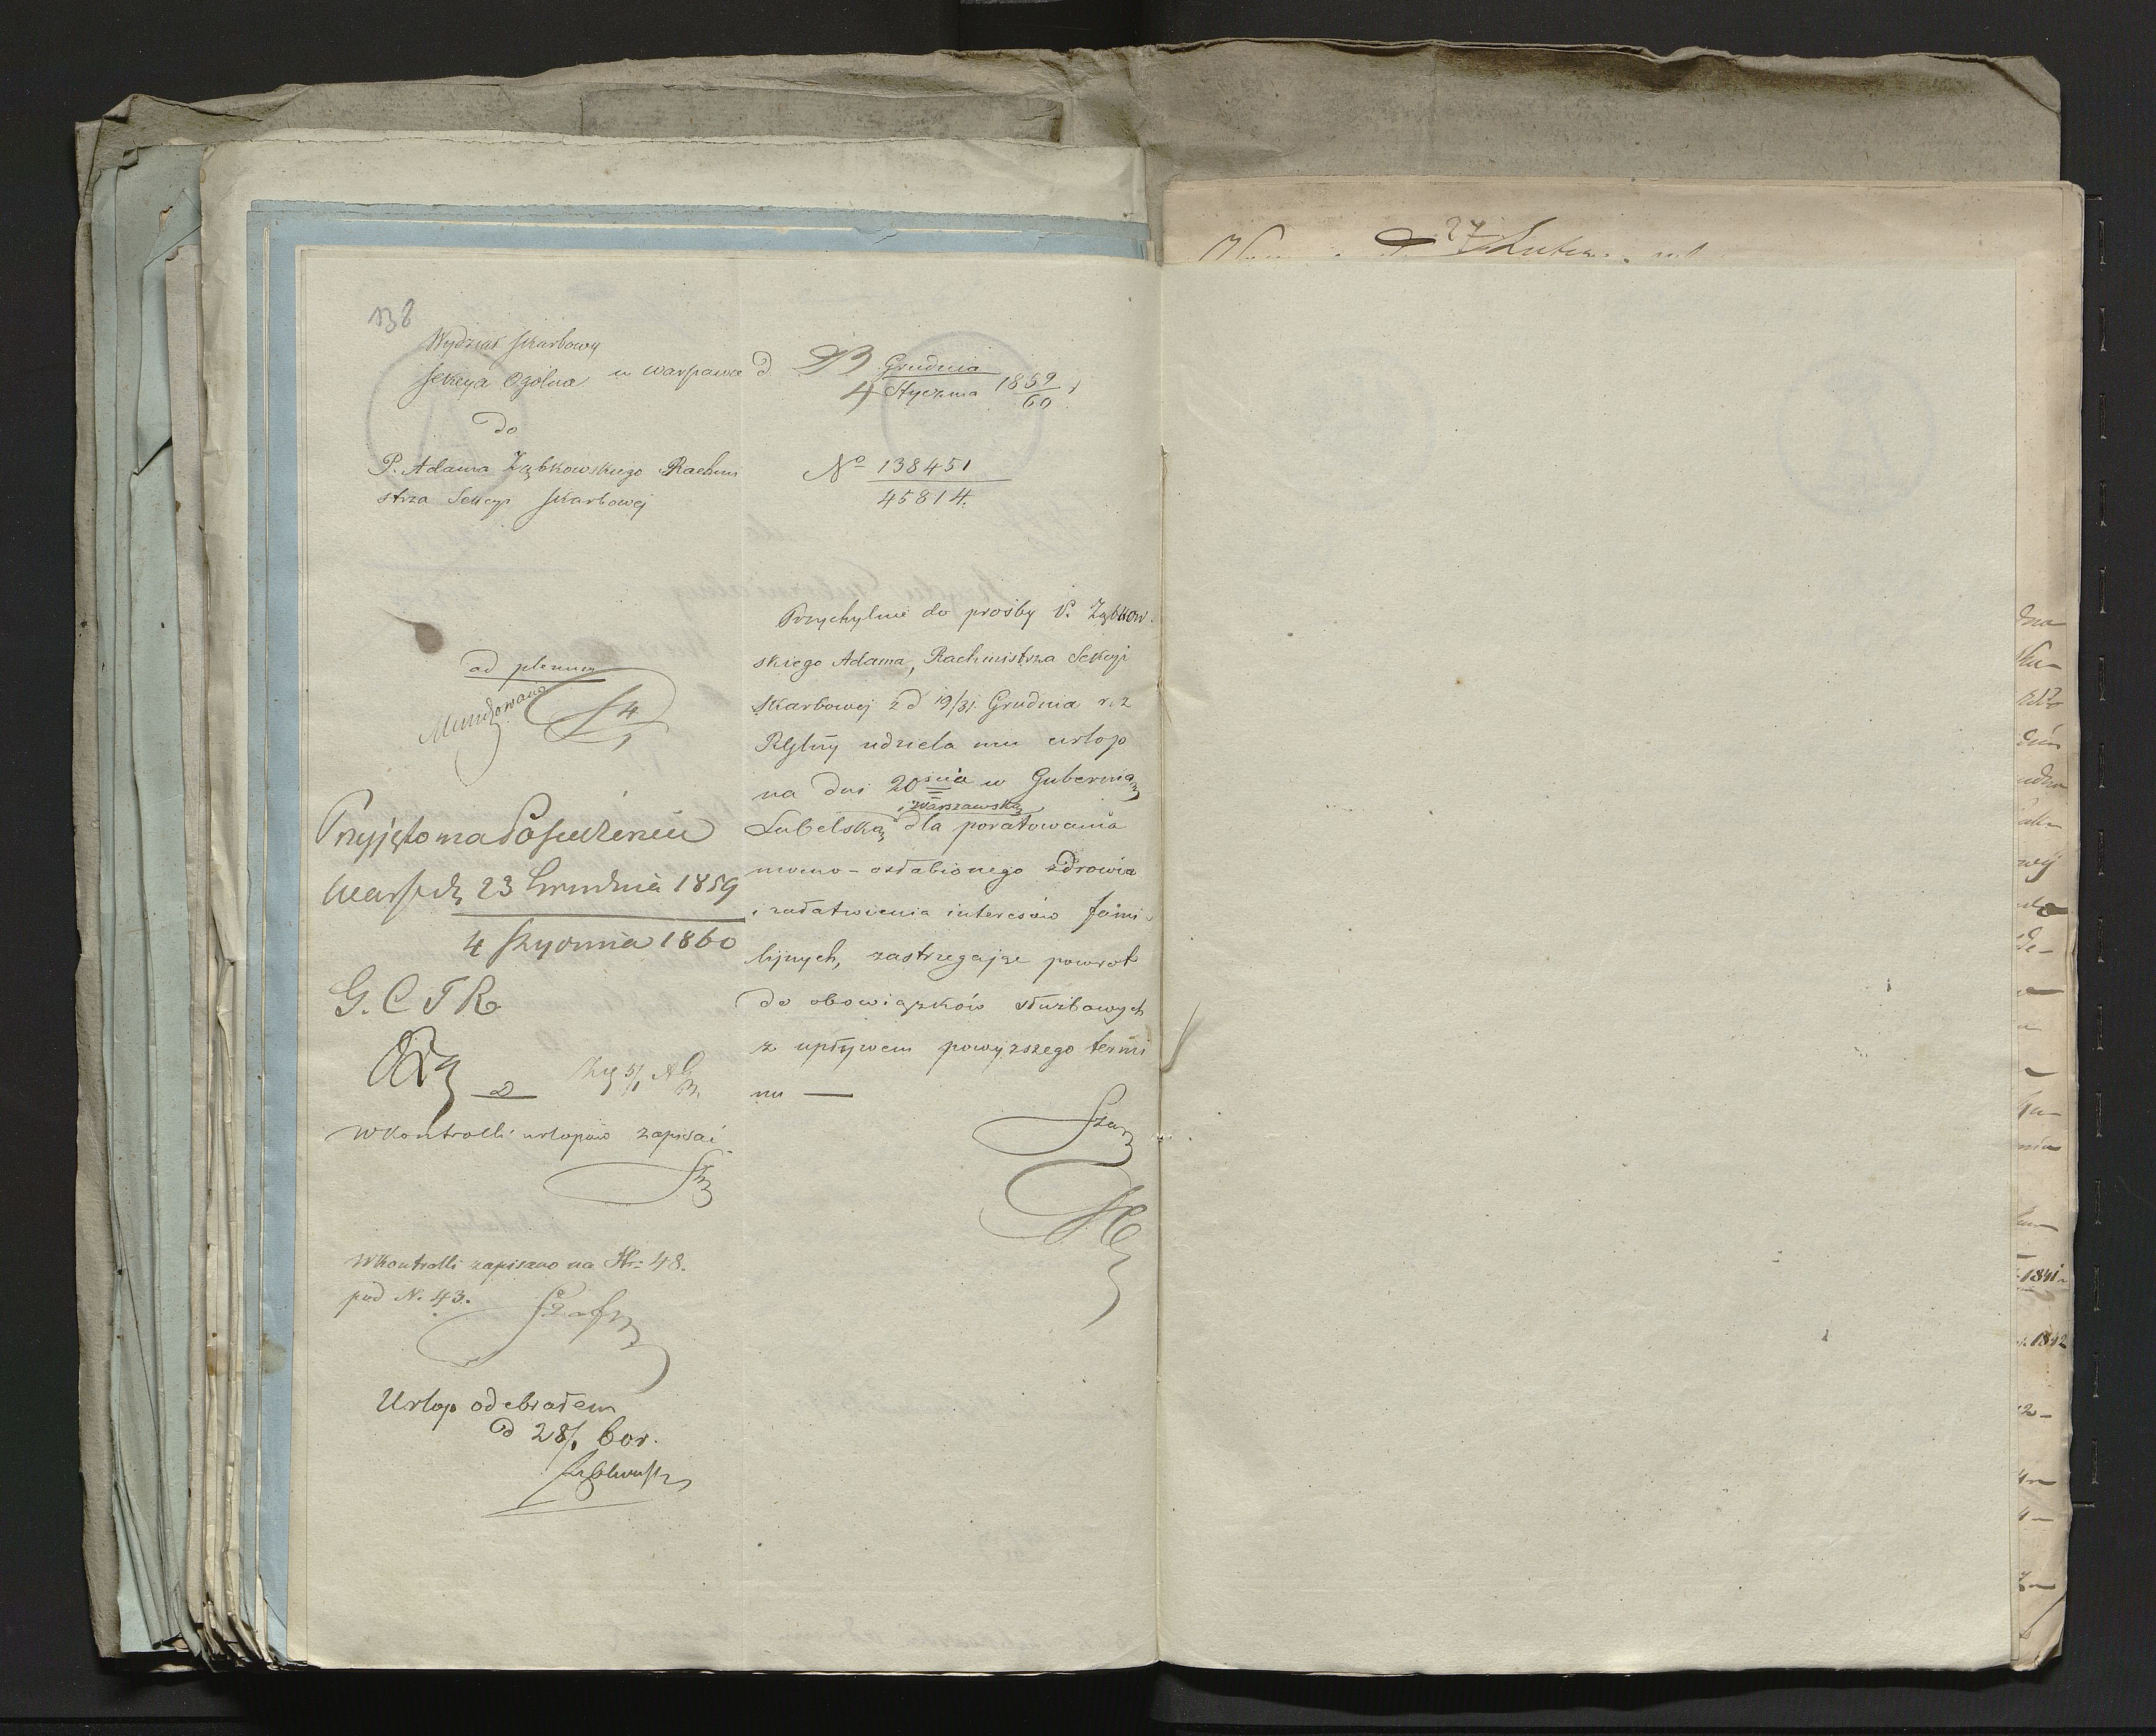 138
Wydział Skarbowy
Sekcya Ogólna
w Warszawie d. 23 Grudnia 1859
4 Stycznia 60 r.
do
P. Adama Ząbkowskiego Rachmi
strza Sekcyi Skarbowej
No 138451
45814.
ad plenum
Mundowano
4/1
Przyjęto na Posiedzeniu
Warsz. d. 23 Grudnia 1859
4 Stycznia 1860
G. C. T R
W Kontrolli urlopów zapisać
W Kontrolli zapisano na Str: 48.
pod N. 43.
Urlop odebrałem
d 28/1 60 r.
Ząbkowski
Przychylnie do prośby P. Ząbkow-
skiego Adama, Rachmistrza Sekcyi
Skarbowej z d 19/31 Grudnia r. z
udziela mu urlop
na dni 20 w Gubernią
i Warszawską
Lubelską dla poratowania
mocno-osłabionego zdrowia
i załatwienia interesów fami-
lijnych, zastrzegając powrót
do obowiązków służbowych
z upływem powyższego termi
nu —
27 Lutego
1841
1842